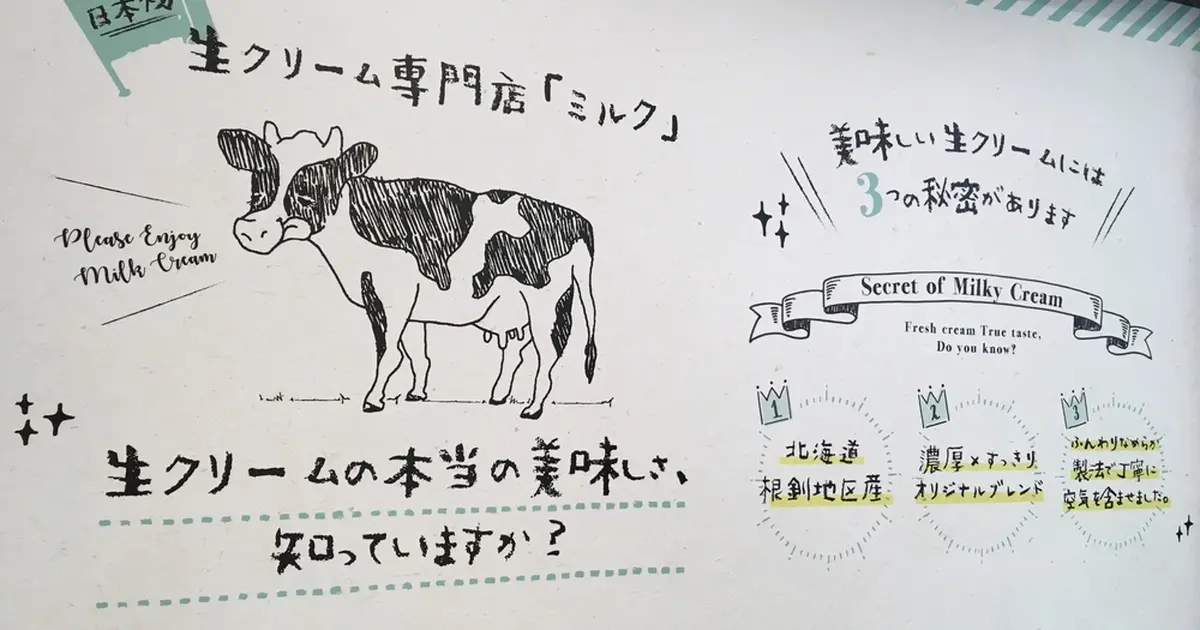 日本初
生クリーム専門店「ミルク」
Please Enjoy
Milk Cream
生クリームの本当の美味しさ、
知っていますか？
美味しい生クリームには
3つの秘密があります
Secret of Milky Cream
Fresh cream True taste,
Do you know?
1
北海道
根釧地区産
2
濃厚×すっきり
オリジナルブレンド
3
ふんわりなめらか
製法で丁寧に
空気を含ませました。